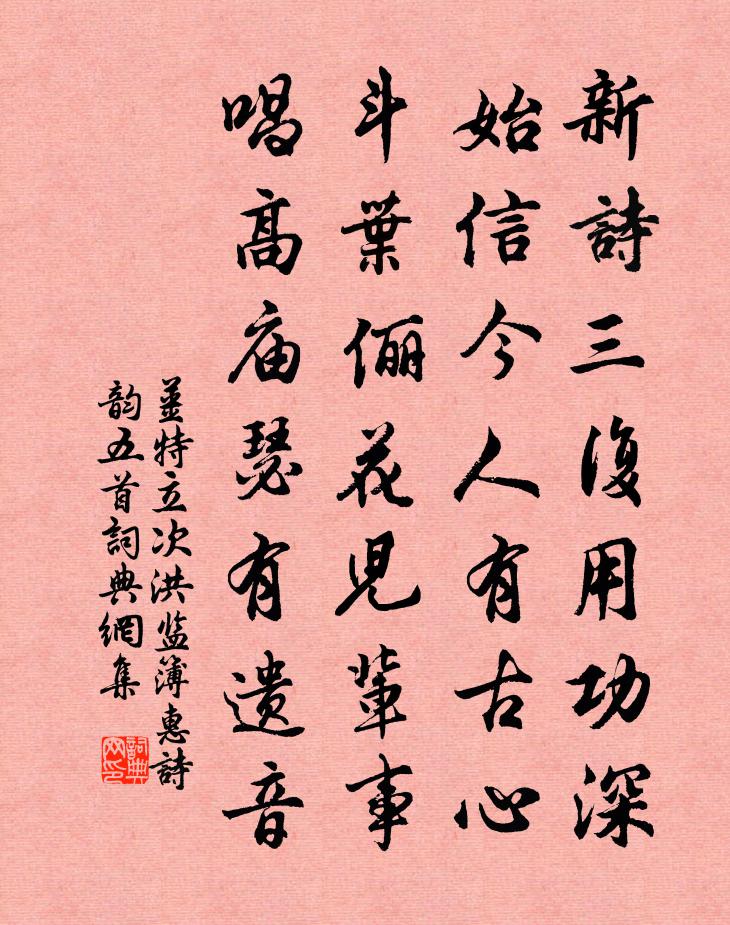 新詩三復用功深
始信今人有古心
斗葉儷花児輩事
唱高庙瑟有遗音
姜特立次洪监簿惠詩
韵五首詞典網集
詞典
网印